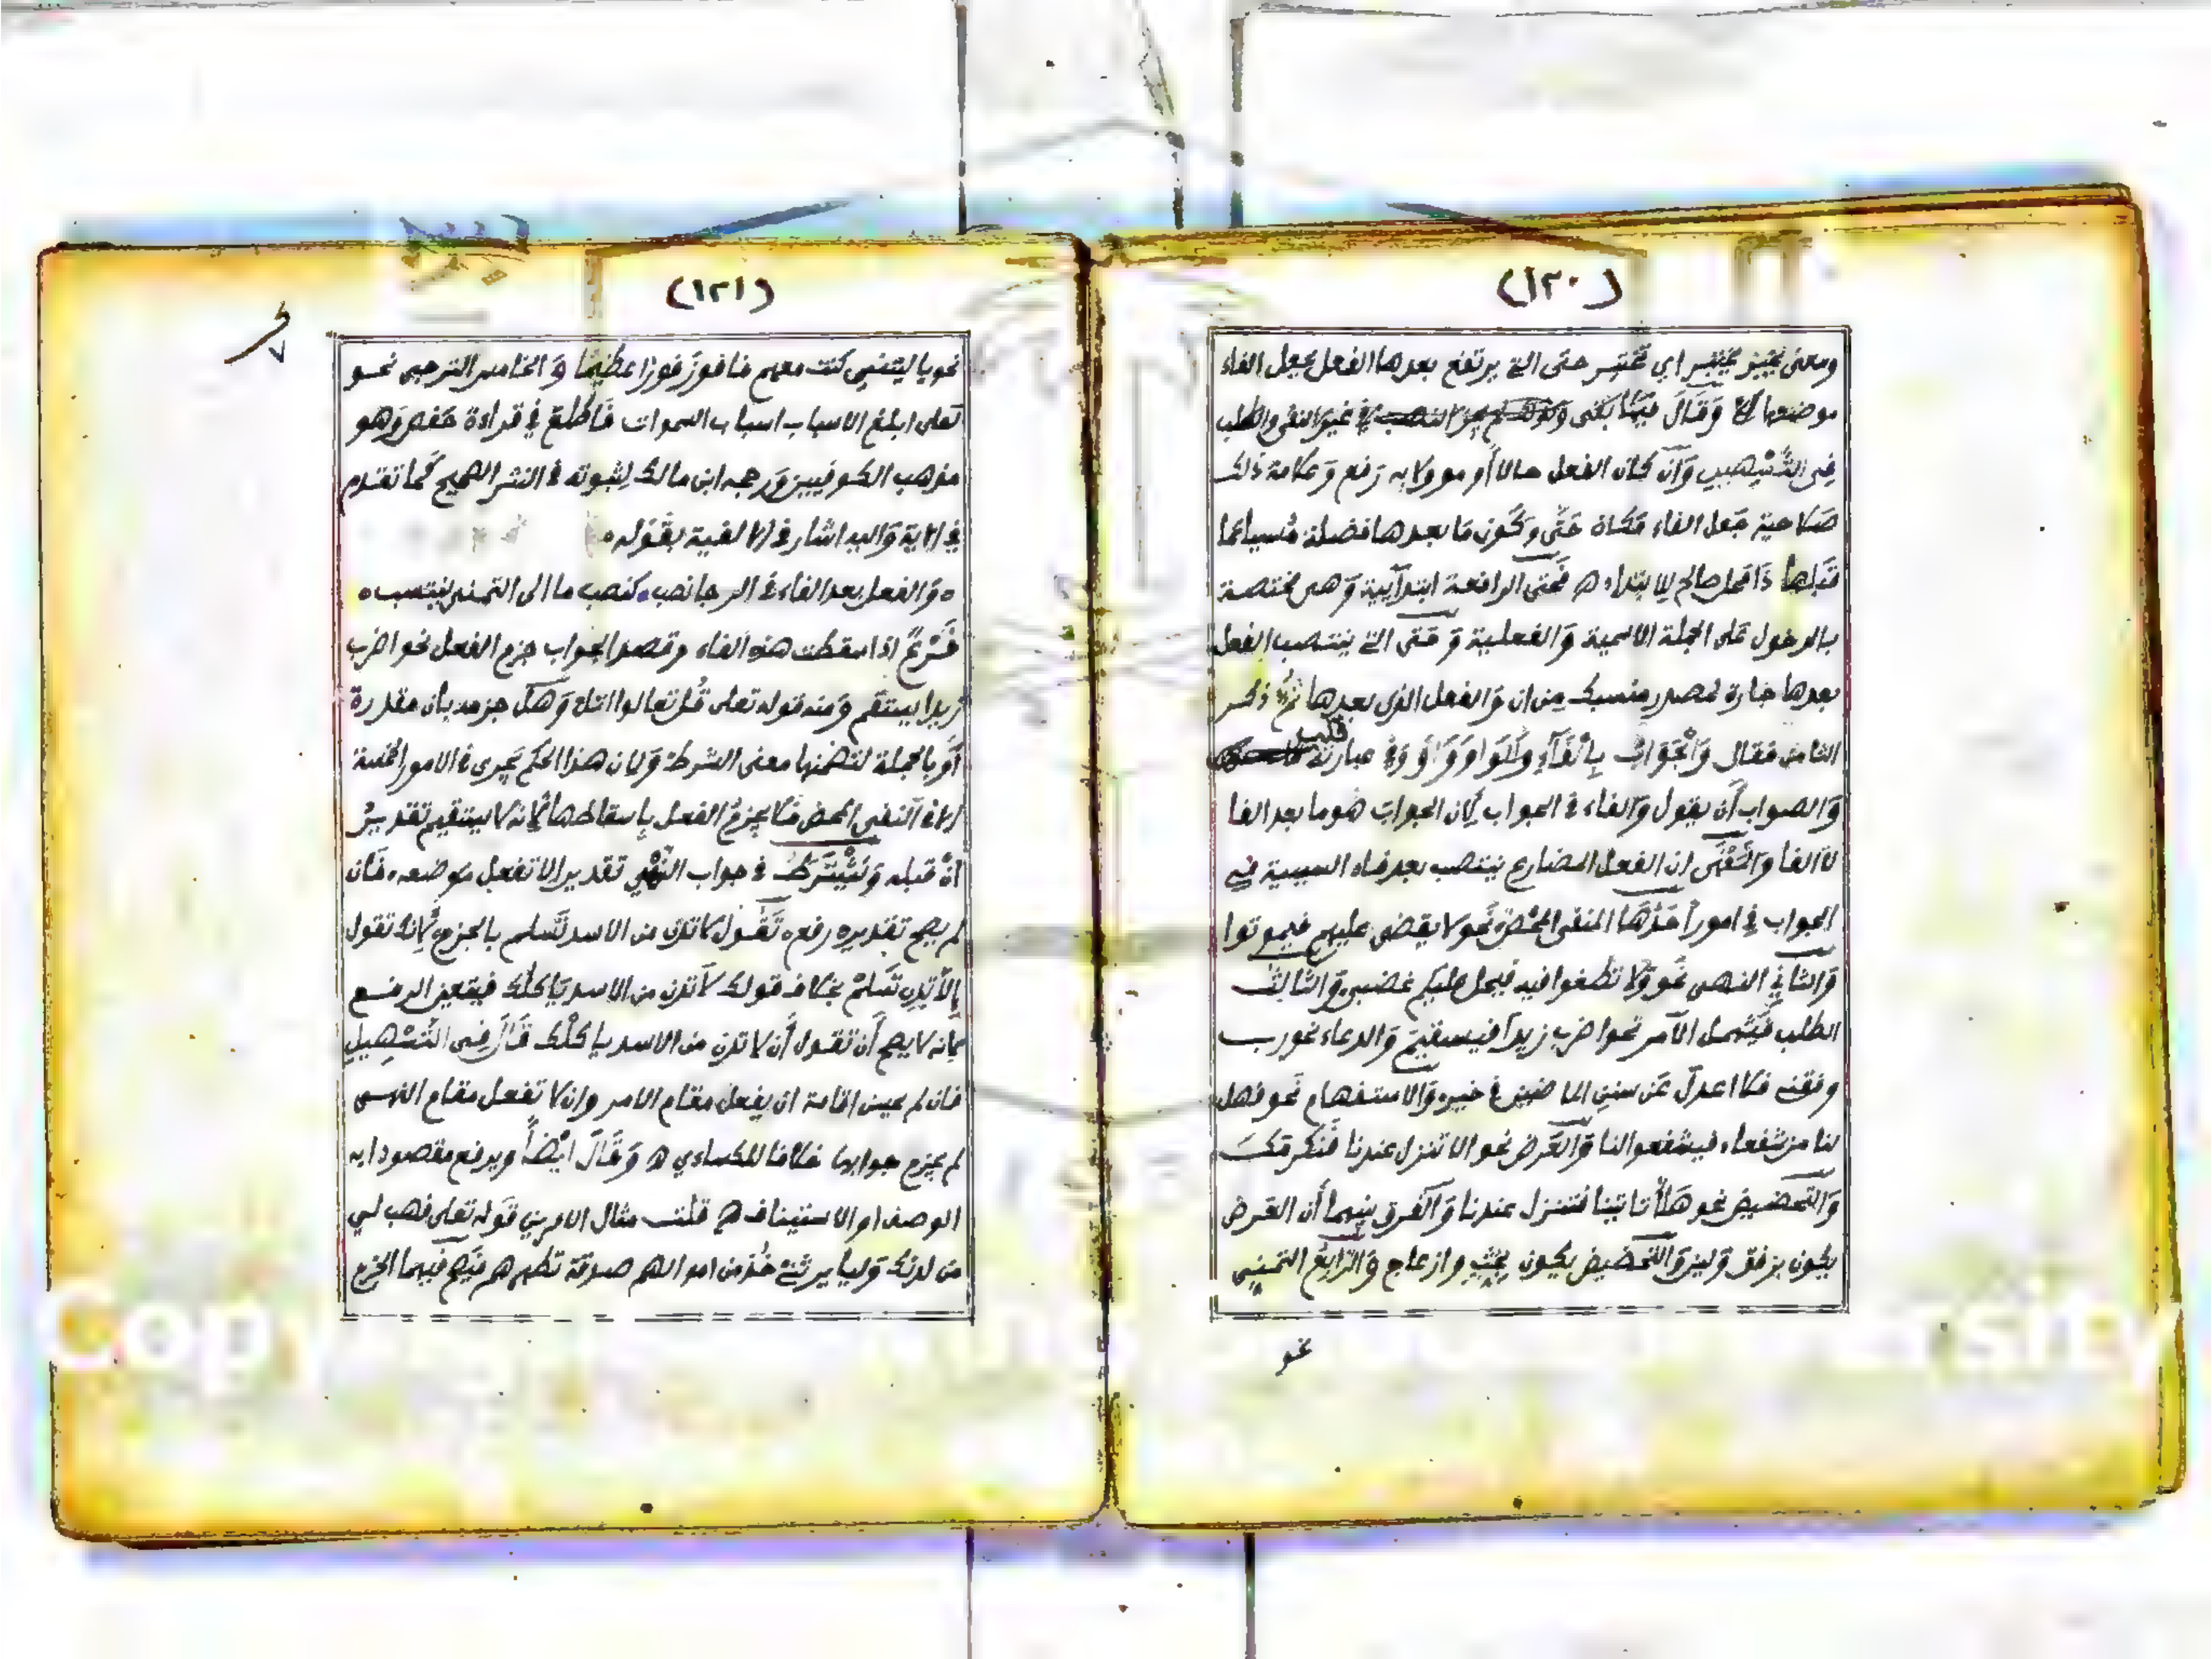 (١٢٠)
ومعنى يختبر اي تختبر حتى التي يرتفع بعدها الفعل بجعل الفاء
موضعها وَقَالَ في غير النفي والطلب
فِى التَّسْهِيلِ وَاَن كان الفعل حالا أو موولا به رَفع وَعلامة ذلك
صَلاحية جَعل الفاء مَكان حَتَّى وَكَون مَا بعدها فضلة مُسببا عما
قَبلها ذَا محل صالح للابتداء ه فَحتى الرافعة ابتدآيية وَهى مختصة
بالدخول عَلى الجملة الاسمية وَالفعلية وَ حَتى التي ينتصب الفعل
بعدها جارة لمصدر منسبك مِن ان وَالفعل الذى بعدها ثمَّ ذكر
الثامن فقال وَالْجَوَابُ بِالْفَآءِ وَالْوَاو وَ وَفي عبارته قلب
وَالصواب أن يقول وَالفاء في الجواب لِان الجوابَ هُوما بعد الفا
لاَ الفا وَالْمَعْنَى ان الفعل المضارع ينتصب بعد فاء السببية في
الجواب في امور أحَدُهَا النفى المحْض نَحو لا يقضى عليهم فيموتوا
وَالثاني النهى نَحو وَلا تطغوا فيه فيحل عليكم غضبى وَالثالث
الطلب فَيَشمل الاَمر نحو اضرب زيداً فيستقيمَ وَالدعاء نحو رب
وفقنى فلا اعدلَ عَن سنن الماضين في خير وَالاستفهام نَحو فهل
لنا من شفعاء فيشفعوا لنا وَالعَرض نحو الا تنزل عندنا فَنكرمَكَ
وَالتحضيض نحو هَلاّ تاتينا فتنزل عندنا وَالفرق بينهما أن العَرض
يكون برفق وَلين وَالتحضيض يكون بحث وازعاج وَالرَّابع التمنى
نحو
(١٢١)
نحو يا ليتنى كنت معهم فافوزَ فوزا عظيما وَ الخامس الترجى نحو
لعلى ابلغ الاسباب اسباب السموات فَاطلعَ في قراءة حَفص وَهو
مذهب الكوفيين وَرجحه ابن مالك لِثبوته في النثر الصحيح كَما تقدم
في الاية وَاليه اشار في الالفية بقَوله ه
ه وَالفعل بعد الفاء في الرجا نصب ه كنصب ما الى التمنى ينتسب ه
فَرْعٌ اذا سقطت هذه الفاء وقصد الجواب جزم الفعل نحو اضرب
زيدا يستقم وَمنه قوله تعلى قُل تعالوا اتل وَهَل جزمه بأن مقدرة
أوَ بالجملة لتضمنها معنى الشرط وَلان هذا الحكم يَجرى في الامور الخمسة
الا في النفى المحض فلا يجزمُ الفعل بإسقاطها لأنه لا يستقيم تقديرُ
انْ قبله وَيَشْتَرَطُ في جواب النَّهْي تقدير الا تفعل مَوضعه فَان
لم يصح تقديره رفع تَقُول لا تدن من الاسد تَسلم بالجزم لأنك تقول
إلاّ تدن تَسلمْ بخلاف قولك لاَ تدن من الاسد يَاكلك فيتعين الرفع
لِأنه لا يصح أن تقول أن لا تدن من الاسد ياكلْك قَالَ فِى التَّسْهِيلِ
فان لم يحسن اقامة ان يفعل مقام الامر وان لا تفعل مقام النهى
لم يجزم جوابهما خلافا للكسائي ه وَقَالَ ايْضاً ويرفع مقصودا به
الوصف او الاستيناف ه قلت مثال الامرين قَوله تعلى فهب لي
من لدنك وَلياً يرثني خُذ من اموالهم صدقة تطهرهم فَيَصح فيهما الجزم